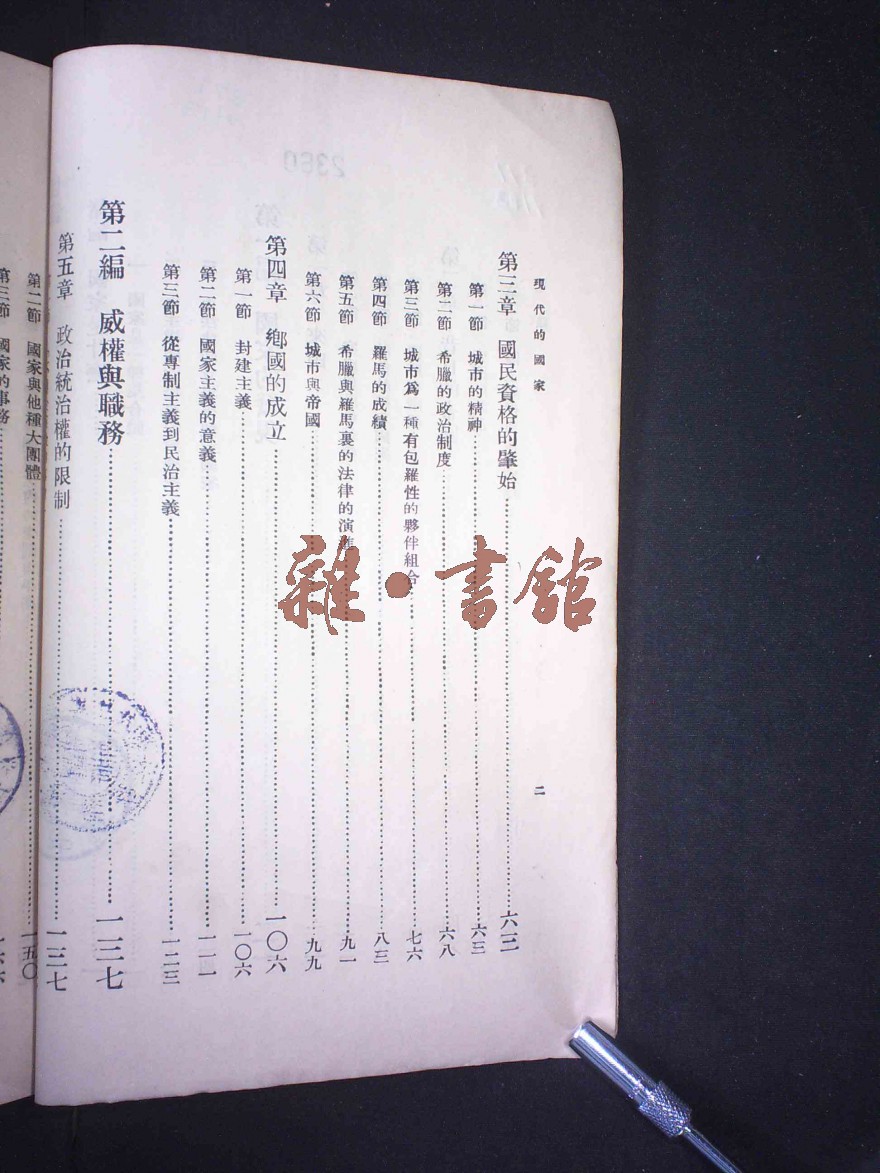 現代的國家
二
第三章 國民資格的肇始 六三
第一節 城市的精神 六三
第二節 希臘的政治制度 六八
第三節 城市爲一種有包羅性的夥伴組合 七六
第四節 羅馬的成績 八三
第五節 希臘與羅馬裏的法律的演進 九一
第六節 城市與帝國 九九
第四章 鄉國的成立 一〇六
第一節 封建主義 一〇六
第二節 國家主義的意義 一一一
第三節 從專制主義到民治主義 一二三
第二編 威權與職務 一三七
第五章 政治統治權的限制 一三七
第二節 國家與他種大團體 一五〇
國家的事務
雜·書館
2380